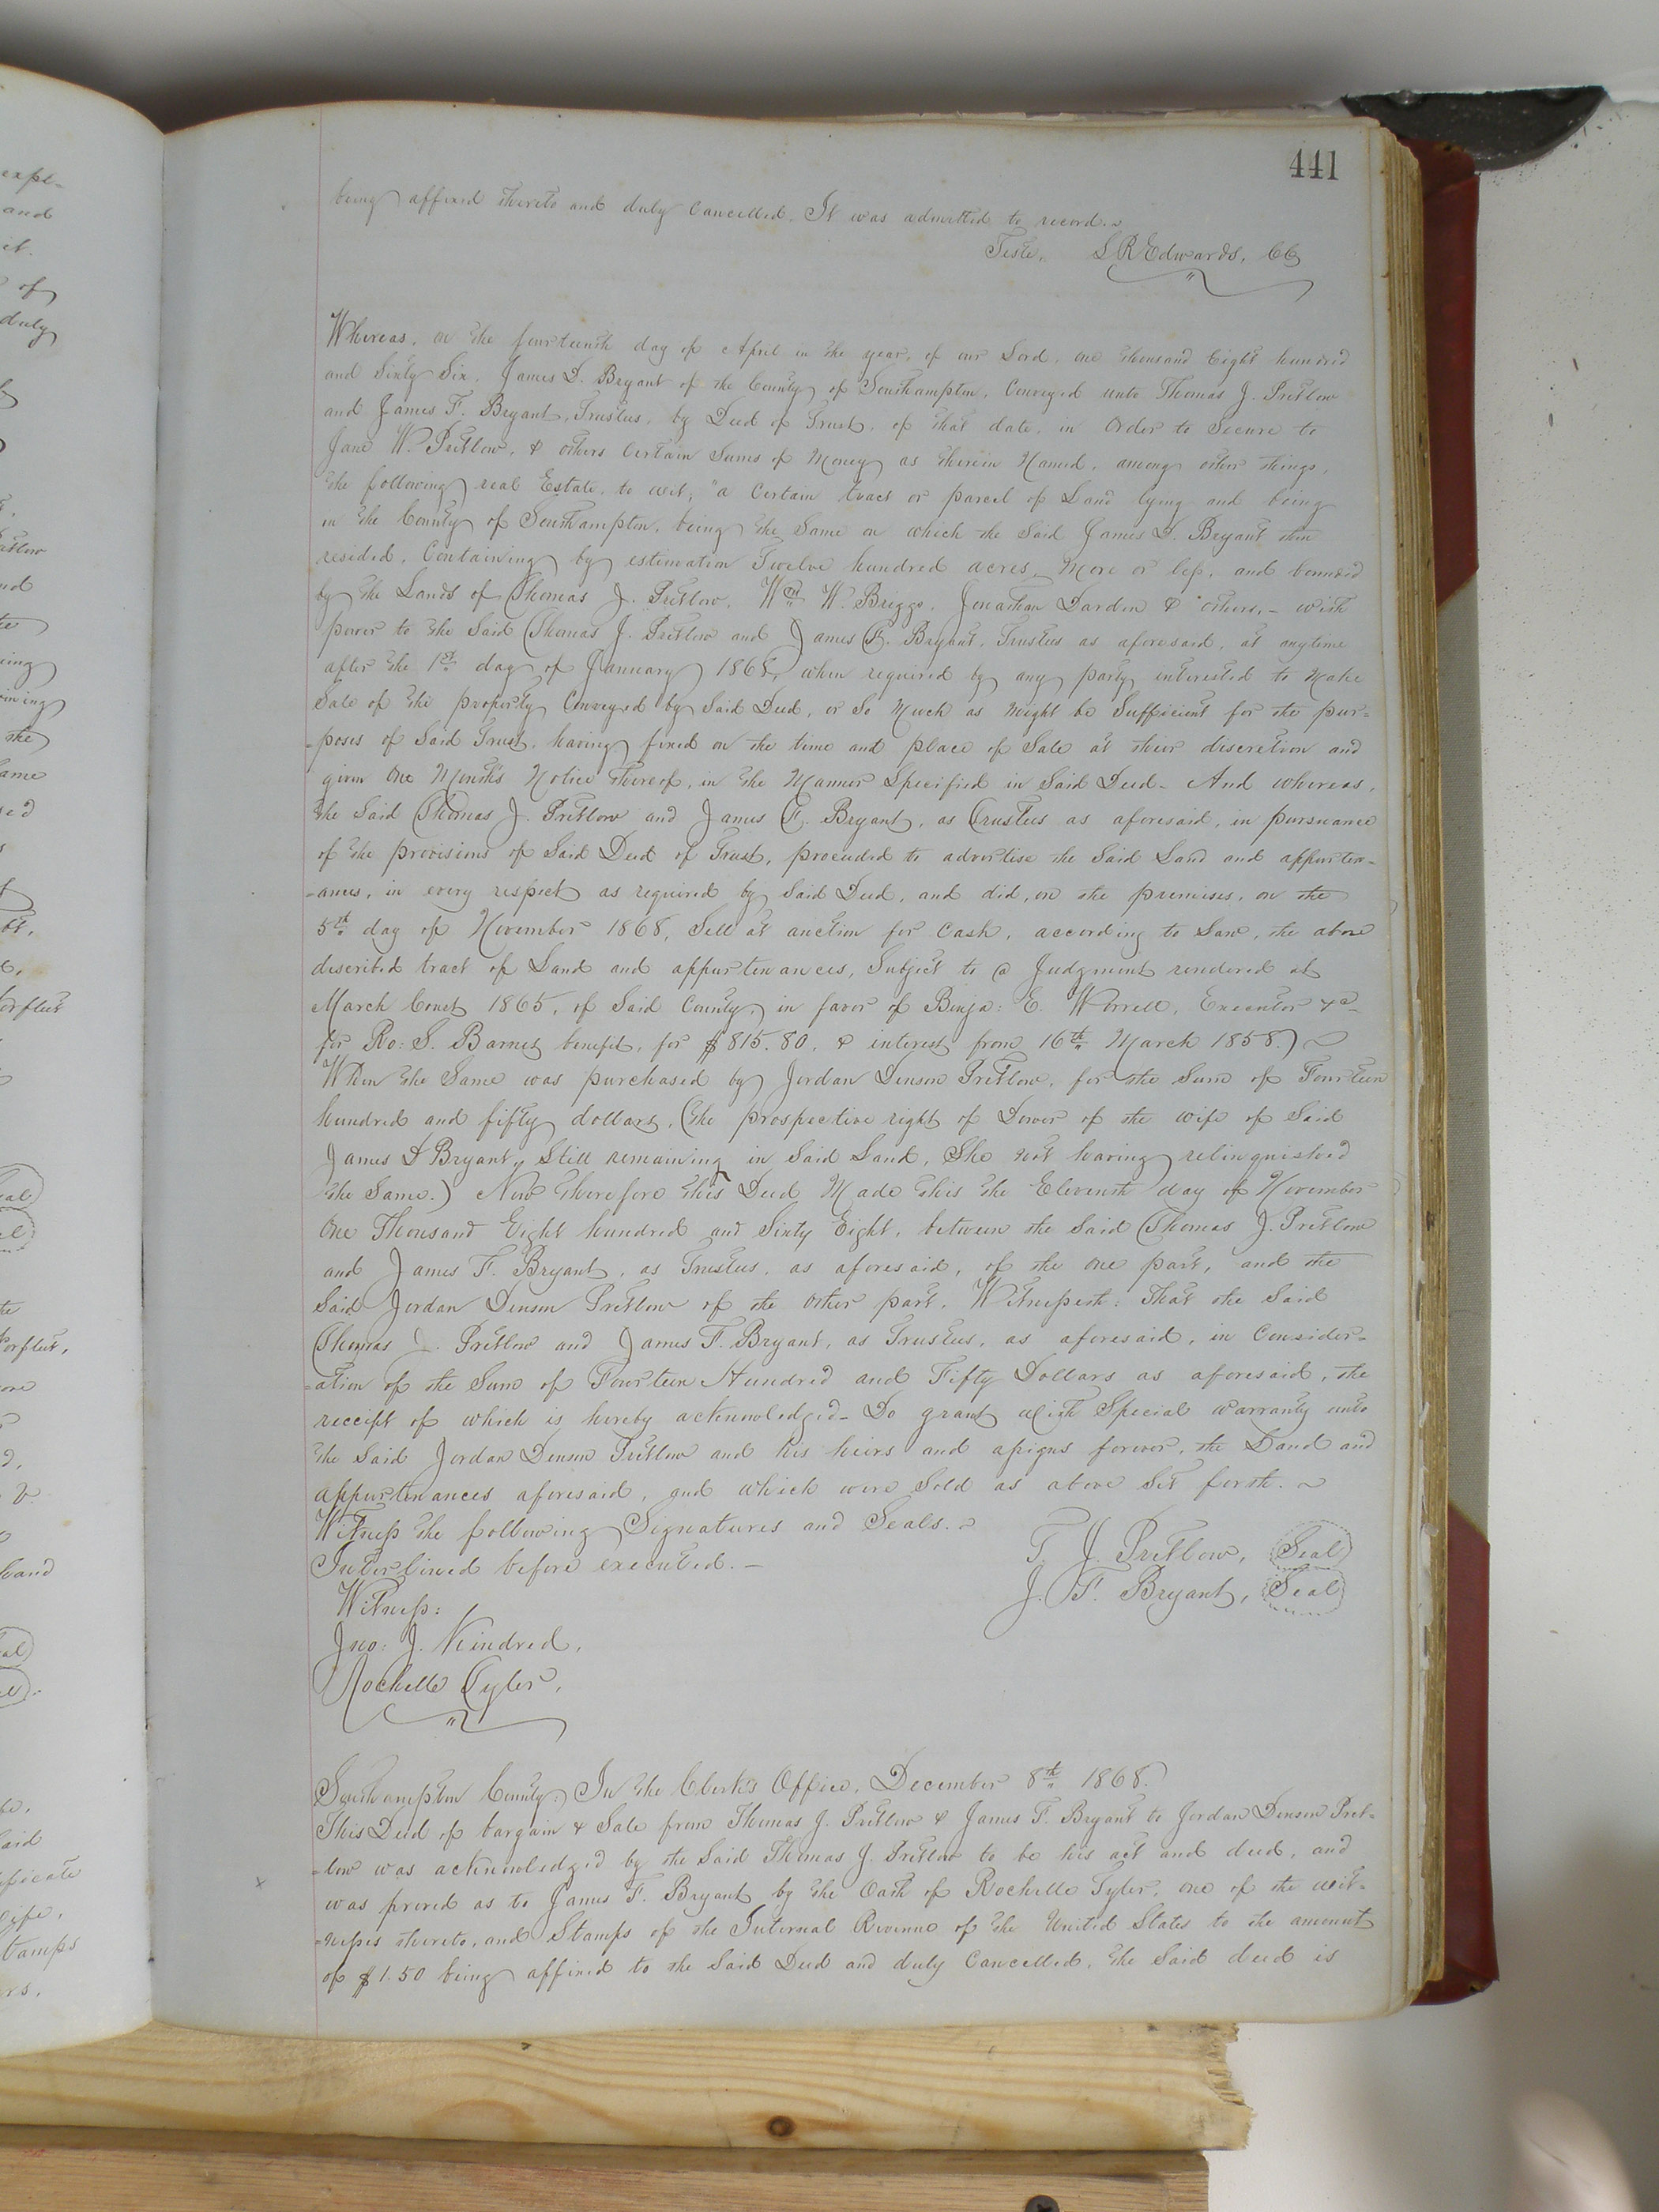 441
being affixed thereto and duly cancelled. It was admitted to record.
Teste, L R Edwards, CC
Whereas, on the fourteenth day of April in the year, of our Lord, one thousand Eight hundred
and Sixty Six, James D. Bryant of the County of Southampton, Conveyed unto Thomas J. Pretlow
and James F. Bryant, Trustees, by Deed of Trust, of that date, in Order to Secure to
Jane W. Pretlow, & others Certain Sums of Money as therein Named, among other things,
the following real Estate, to wit; "a Certain tract or parcel of Land lying and being
in the County of Southampton, being the Same on which the Said James D. Bryant then
resided, Containing by estimation Twelve hundred acres, More or less, and bounded
by the Lands of Thomas J. Pretlow, Wm W. Briggs, Jonathan Darden & others, - with
power to the Said Thomas J. Pretlow and James F. Bryant, Trustees as aforesaid, at anytime
after the 1st day of January 1868, when required by any party interested to Make
Sale of the property Conveyed by Said Deed, or So Much as Might be Sufficient for the pur=
=poses of Said Trust, having fixed on the time and place of Sale at their discretion and
given One Month's Notice thereof, in the Manner Specified in Said Deed - And whereas,
the Said Thomas J. Pretlow and James F. Bryant, as Trustees as aforesaid, in pursuance
of the provisions of Said Deed of Trust, proceeded to advertise the Said Land and appurten=
=ances, in every respect as required by Said Deed, and did, on the premises, on the
5th day of November 1868, Sell at auction for Cash, according to Law, the above
described tract of Land and appurtenances, Subject to a Judgment rendered at
March Court 1865, of Said County, in favor of Benja: E. Worrell, Executor &c
for Ro: S. Barnes benefit, for $815.80, & interest from 16th March 1858.)
When the Same was purchased by Jordan Denson Pretlow, for the Sum of Fourteen
hundred and fifty dollars, (the prospective right of Dower of the wife of Said
James D Bryant, Still remaining in Said Land, She not having relinquished
the Same.) Now therefore this Deed Made this the Eleventh day of November
One Thousand Eight hundred and Sixty Eight, between the Said Thomas J. Pretlow
and James F. Bryant, as Trustees, as aforesaid, of the one part, and the
Said Jordan Denson Pretlow of the other part, Witnesseth: That the Said
Thomas J. Pretlow and James F. Bryant, as Trustees, as aforesaid, in Consider=
=ation of the Sum of Fourteen Hundred and Fifty Dollars as aforesaid, the
receipt of which is hereby acknowledged - Do grant with Special warranty unto
the Said Jordan Denson Pretlow and his heirs and assigns forever, the Land and
appurtenances aforesaid, and which were Sold as above Set forth.
Witness the following Signatures and Seals.
Interlined before executed. -
T. J. Pretlow, Seal
J. F. Bryant, Seal
Witness:
Jno: J. Kindred,
Rochelle Tyler,
Southampton County: In the Clerk's Office, December 8th 1868.
This Deed of bargain & Sale from Thomas J. Pretlow & James F. Bryant to Jordan Denson Pret=
=low was acknowledged by the Said Thomas J. Pretlow to be his act and deed, and
was proved as to James F. Bryant by the Oath of Rochelle Tyler, one of the wit=
=nesses thereto, and Stamps of the Internal Revenue of the United States to the amount
of $1.50 being affixed to the Said Deed and duly Cancelled, the Said deed is